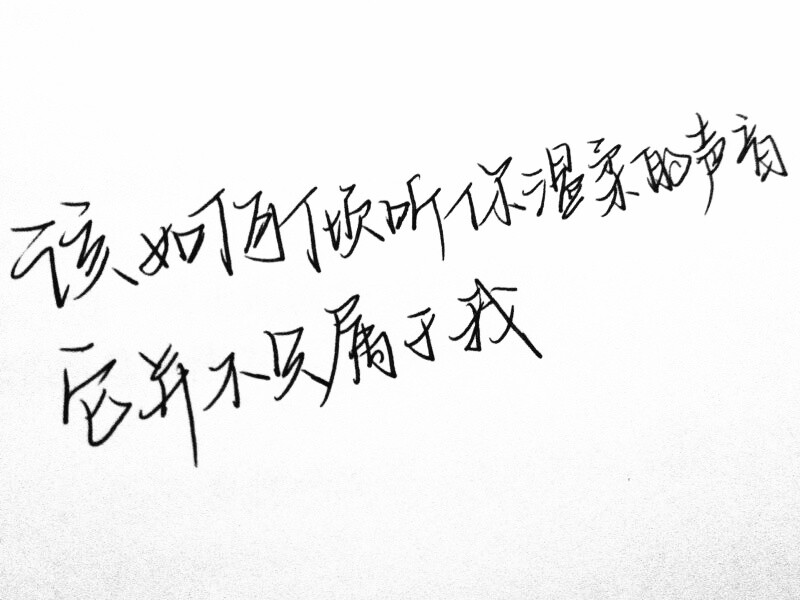 该如何倾听你温柔的声音
它并不只属于我